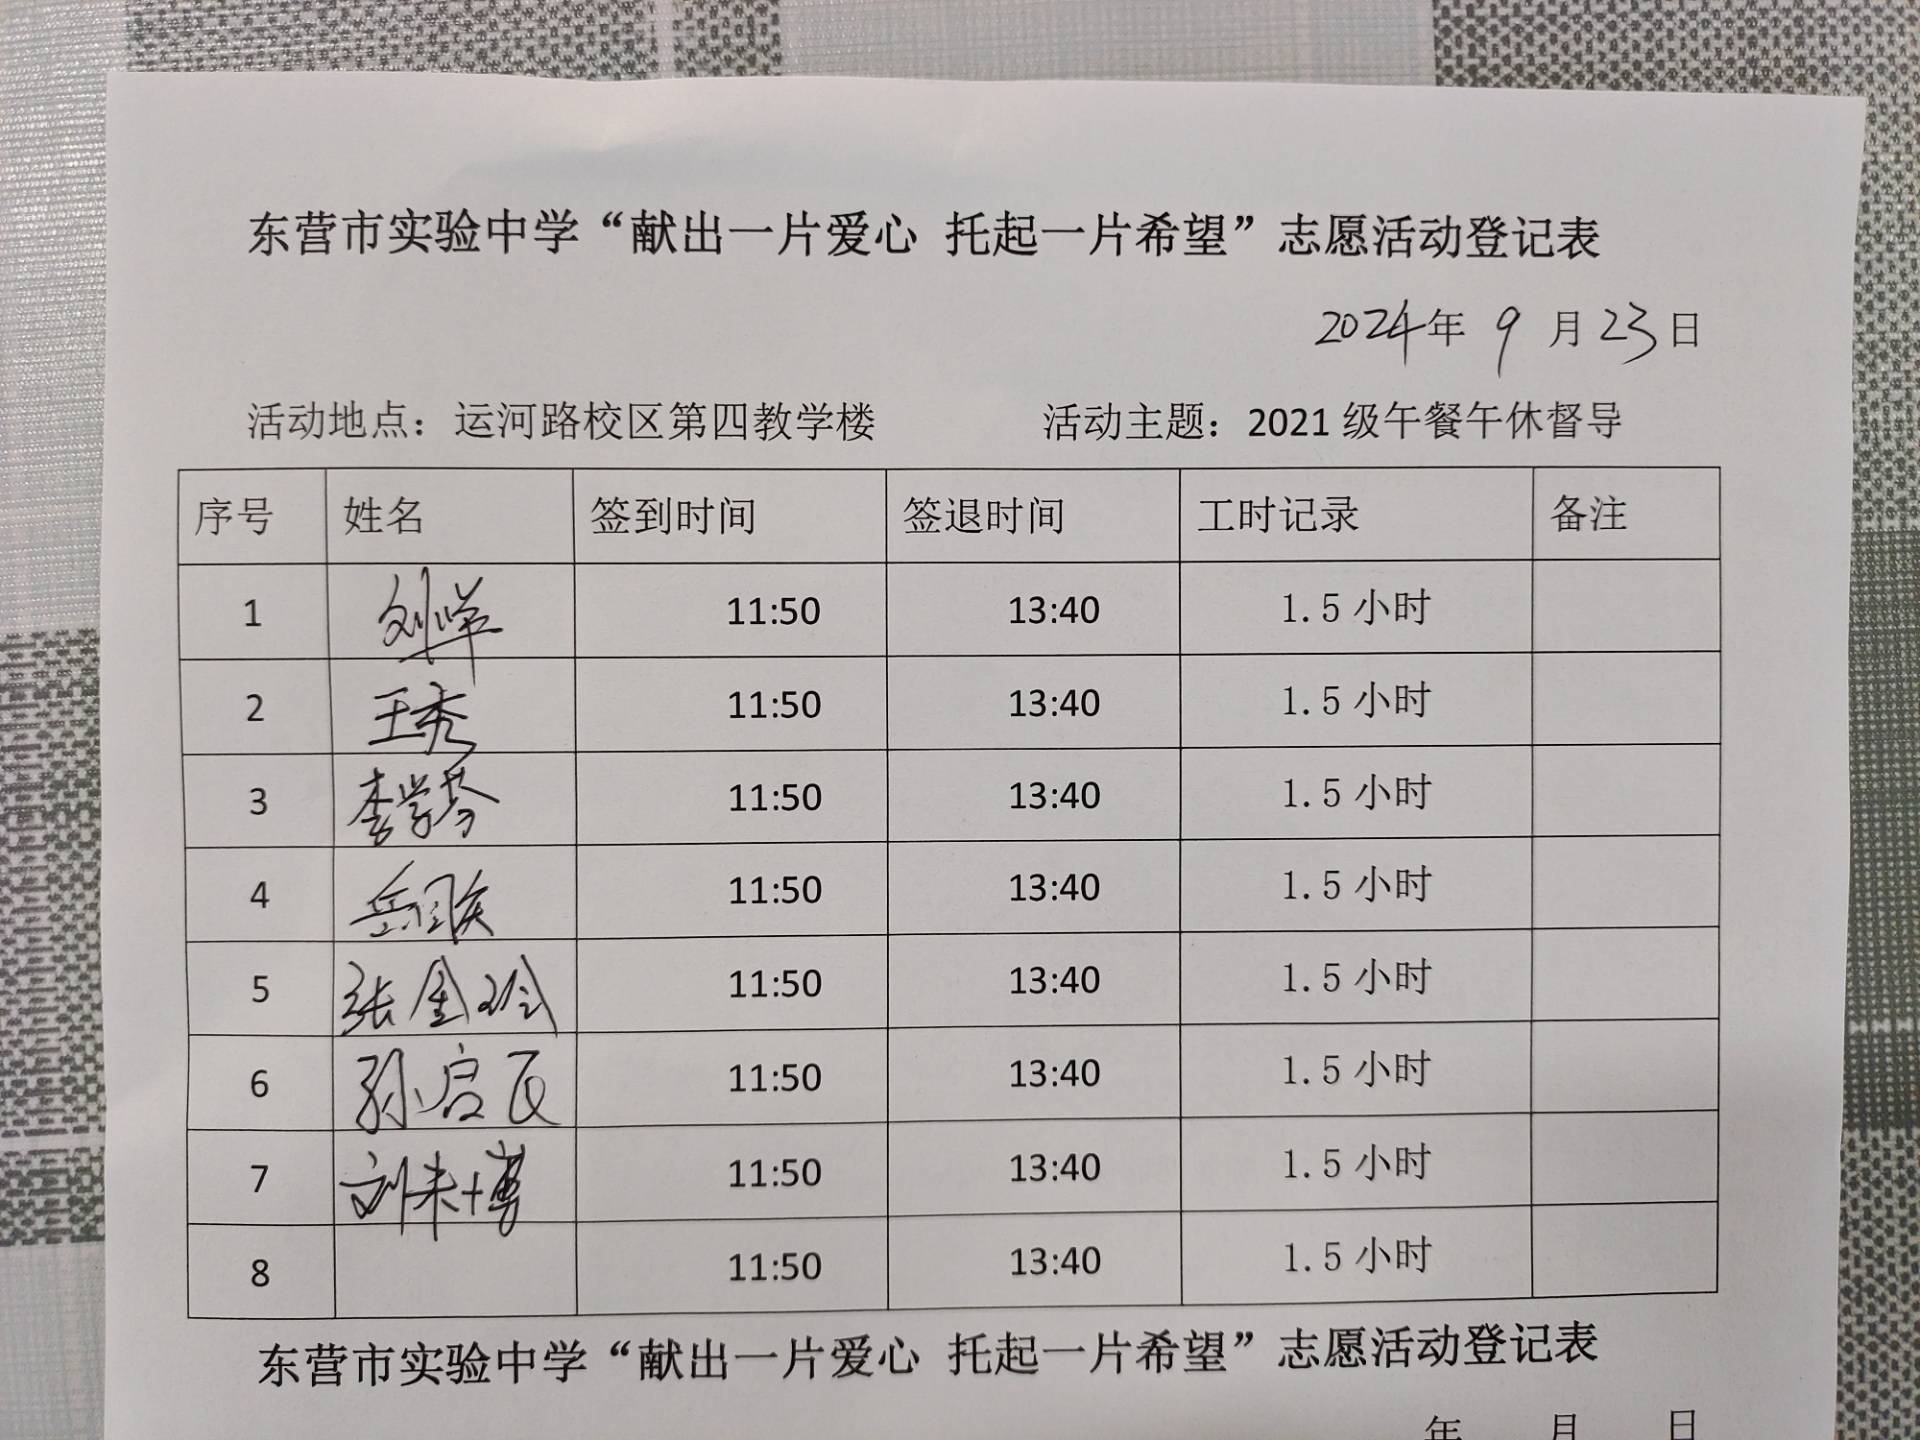 东营市实验中学“献出一片爱心 托起一片希望”志愿活动登记表
2024年 9 月 23 日
活动地点：运河路校区第四教学楼 活动主题：2021 级午餐午休督导
序号 姓名 签到时间 签退时间 工时记录 备注
1 刘 11:50 13:40 1.5 小时
2 王秀 11:50 13:40 1.5 小时
3 李学芬 11:50 13:40 1.5 小时
4 岳 11:50 13:40 1.5 小时
5 张金玲 11:50 13:40 1.5 小时
6 孙启民 11:50 13:40 1.5 小时
7 刘来博 11:50 13:40 1.5 小时
8 11:50 13:40 1.5 小时
东营市实验中学“献出一片爱心 托起一片希望”志愿活动登记表
年 月 日